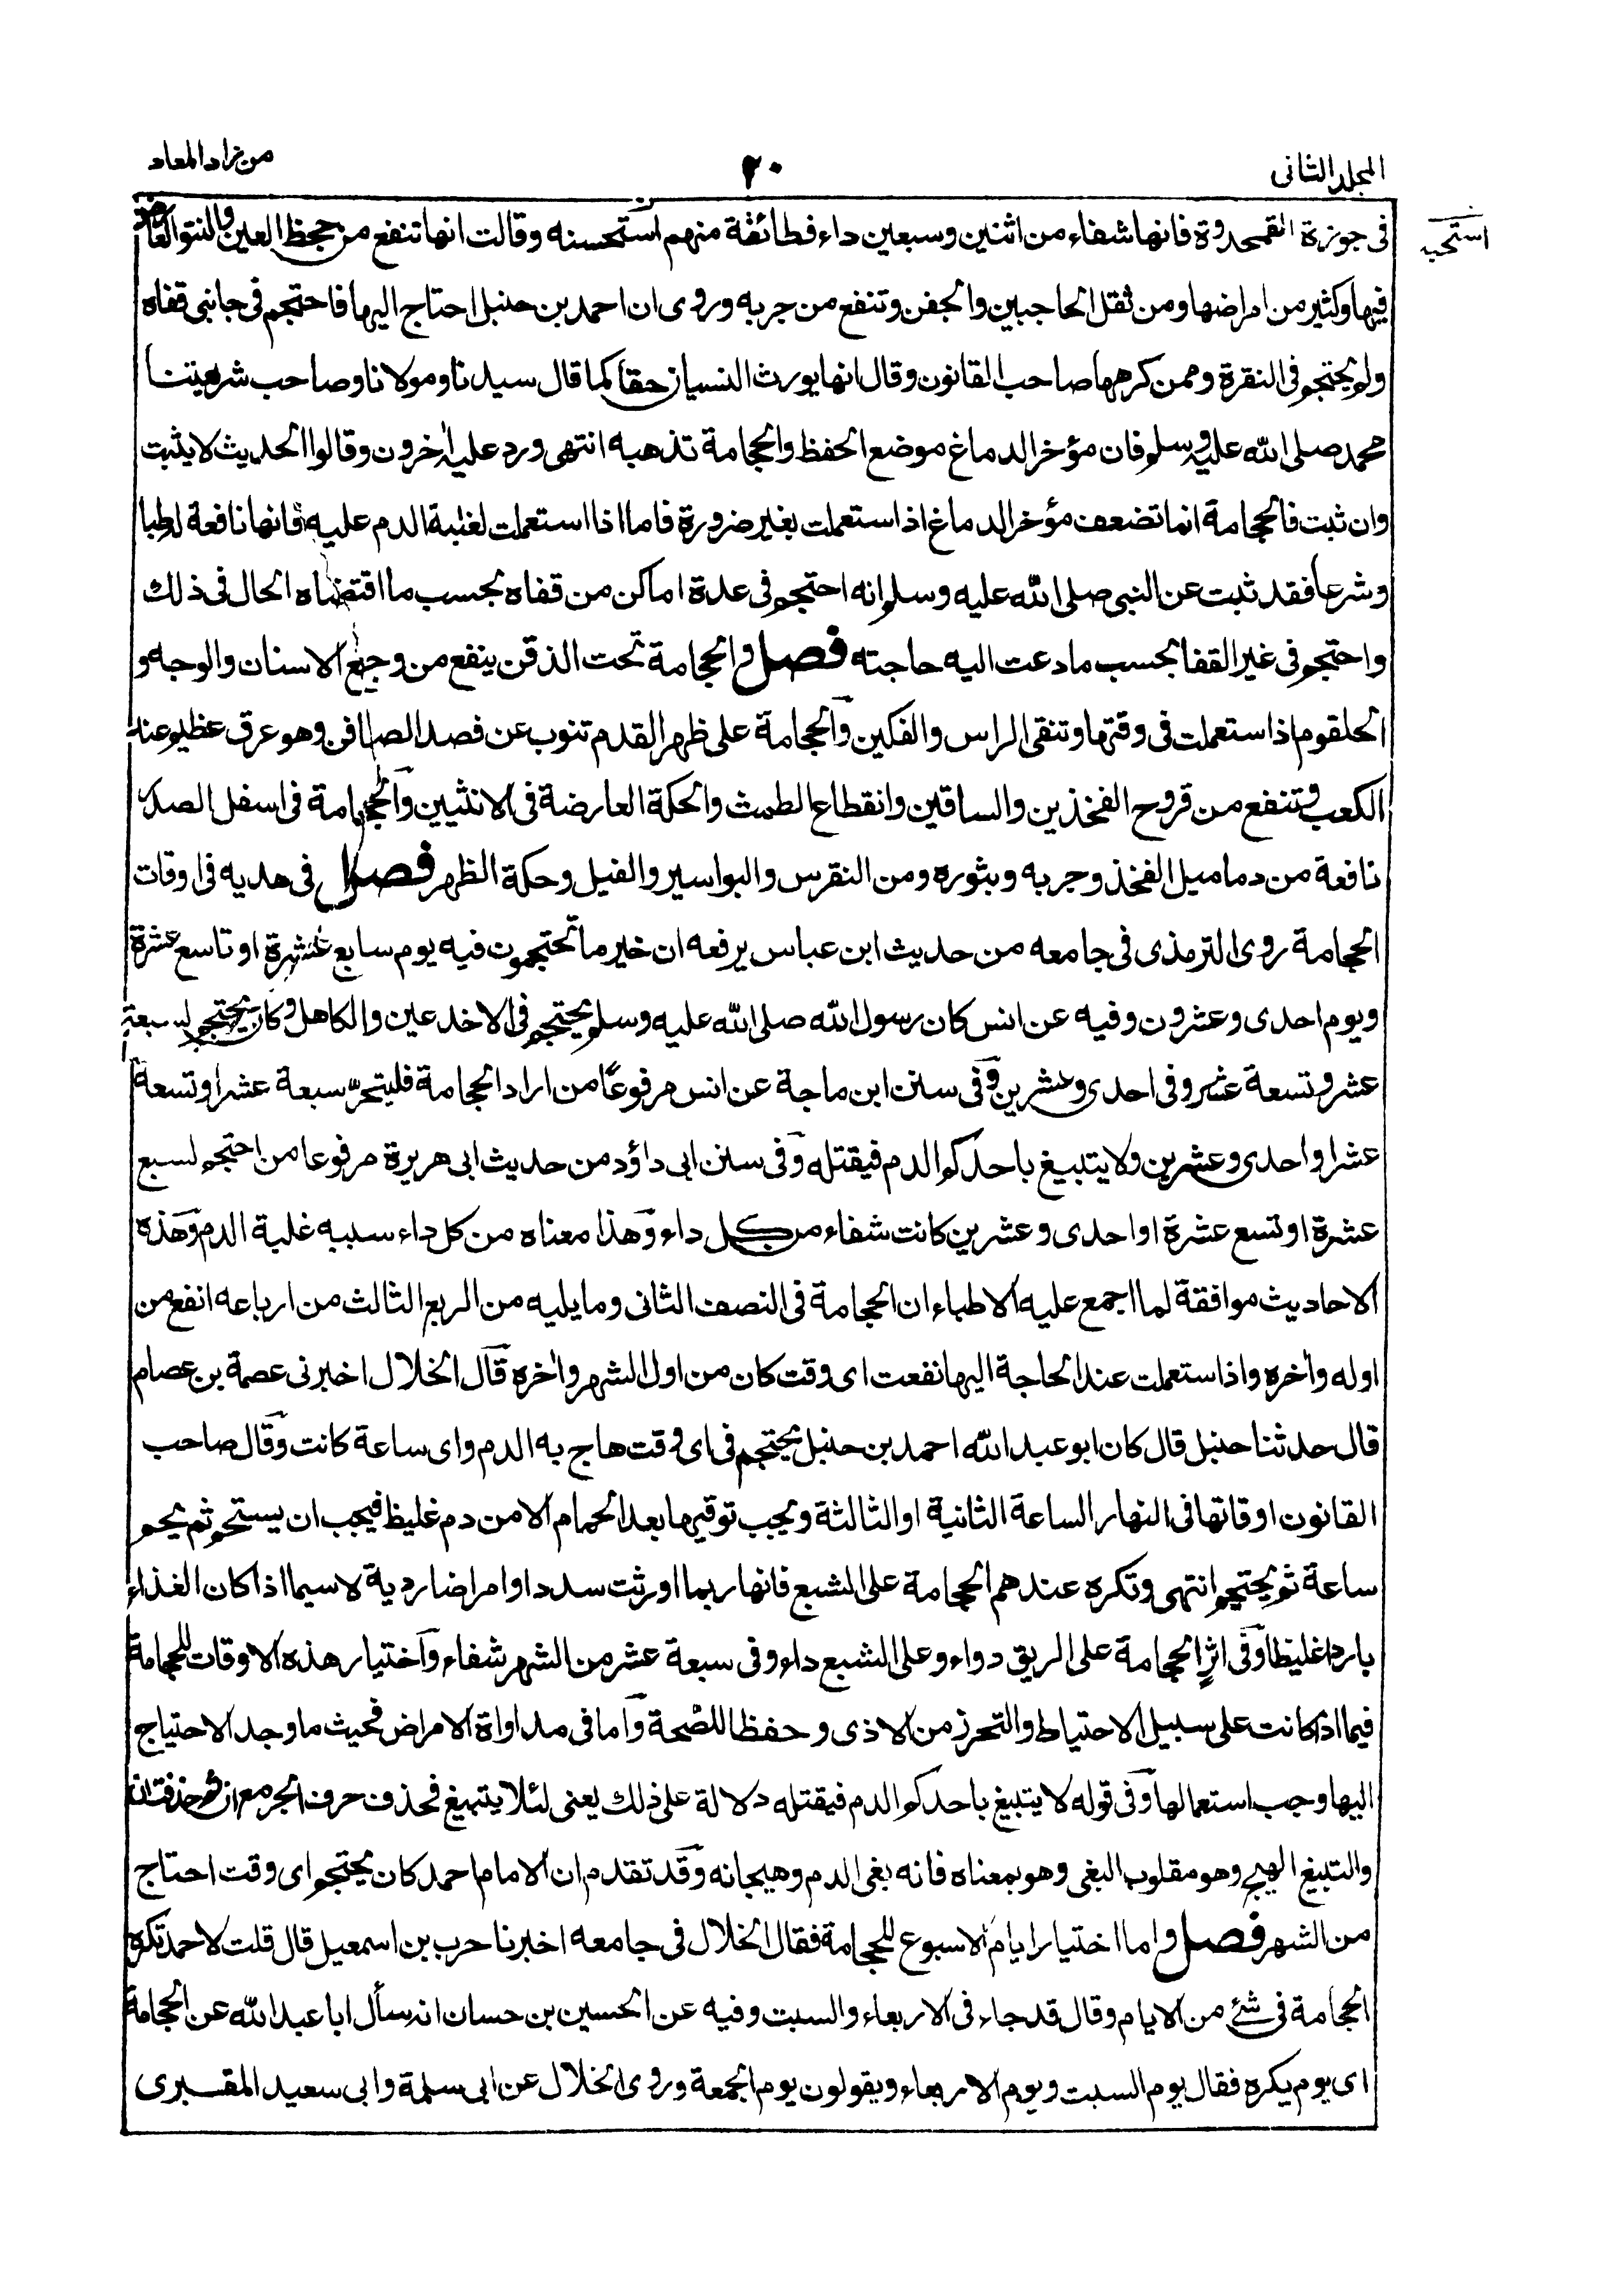 المجلد الثانى
٢٠
من زاد المعاد
استحبه
فى جوزة القمحدوة فانها شفاء من اثنين وسبعين داء فطائفة منهم استحسنه وقالت انها تنفع من جحظ العين والنتو العارض
فيها وكثير من امراضها ومن ثقل الحاجبين والجفن وتنفع من جربه وروى ان احمد بن حنبل احتاج اليها فاحتجم فى جانبى قفاه
ولم يحتجم فى النقرة وممن كرهها صاحب القانون وقال انها يورث النسيان حقا كما قال سيدنا ومولانا وصاحب شريعتنا
محمد صلى الله عليه وسلم فان مؤخر الدماغ موضع الحفظ والحجامة تذهبه انتهى ورد عليه اٰخرون وقالوا الحديث لا يثبت
وان ثبت فالحجامة انما تضعف مؤخر الدماغ اذ استعملت بغير ضرورة فاما اذا استعملت لغلبة الدم عليه فانها نافعة له طبا
وشرعا فقد ثبت عن النبى صلى الله عليه وسلم انه احتجم فى عدة اماكن من قفاه بحسب ما اقتضاه الحال فى ذلك
واحتجم فى غير القفا بحسب ما دعت اليه حاجته فصل والحجامة تحت الذقن ينفع من وجع الاسنان والوجه و
الحلقوم اذا ستعملت فى وقتها وتنقى الراس والفكين والحجامة على ظهر القدم تنوب عن فصد الصافن وهو عرق عظيم عند
الكعب وتنفع من قروح الفخذين والساقين وانقطاع الطمث والحكة العارضة فى الانثيين والحجامة فى اسفل الصدر
نافعة من دماميل الفخذ وجربه وبثوره ومن النقرس والبواسير والفيل وحكة الظهر فصل فى هديه فى اوقات
الحجامة روى الترمذى فى جامعه من حديث ابن عباس يرفعه ان خير ما تحتجمون فيه يوم سابع عشرة او تاسع عشرة
ويوم احدى وعشرون وفيه عن انس كان رسول الله صلى الله عليه وسلم يحتجم فى الاخدعين والكاهل وكان يحتجم لسبعة
عشر وتسعة عشر وفى احدى وعشرين وفى سنن ابن ماجة عن انس مرفوعًا من اراد الحجامة فليتحرّ سبعة عشر اوتسعة
عشر او احدى وعشرين ولا يتبيغ باحدكم الدم فيقتله وفى سنن ابى داؤد من حديث ابى هريرة مرفوعا من احتجم لسبع
عشرة او تسع عشرة او احدى وعشرين كانت شفاء من كل داء وهذا معناه من كل داء سببه غلبة الدم وهذه
الاحاديث موافقة لما اجمع عليه الاطباء ان الحجامة فى النصف الثانى وما يليه من الربع الثالث من ارباعه انفع من
اوله واٰخره واذا ستعملت عند الحاجة اليها نفعت اى وقت كان من اول الشهر واٰخره قال الخلال اخبرنى عصمة بن عصام
قال حدثنا حنبل قال كان ابو عبد الله احمد بن حنبل يحتجم فى اى وقت هاج به الدم واى ساعة كانت وقال صاحب
القانون اوقاتها فى النهار الساعة الثانية او الثالثة ويجب توقيها بعد الحمام الا من دم غليظ فيجب ان يستحم ثم يجم
ساعة ثم يحتجم انتهى وتكره عندهم الحجامة على الشبع فانها ربما اورثت سددا وامراضا ردية لا سيما اذا كان الغذاء
باردا غليظا وفى اثرٍ الحجامة على الريق دواء وعلى الشبع داء وفى سبعة عشر من الشهر شفاء واختيار هذه الاوقات للحجامة
فيما اذا كانت على سبيل الاحتياط والتحرز من الاذى وحفظا للصحة واما فى مداواة الامراض فحيث ما وجد الاحتياج
اليها وجب استعمالها وفى قوله لا يتبيغ باحدكم الدم فيقتله دلالة على ذلك يعنى لئلا يتبيغ فحذف حرف الجر مع ان ثم حذفت ان
والتبيغ الهيج وهو مقلوب البغى وهو بمعناه فانه بغى الدم وهيجانه وقد تقدم ان الامام احمد كان يحتجم اى وقت احتاج
من الشهر فصل واما اختيار ايام الاسبوع للحجامة فقال الخلال فى جامعه اخبرنا حرب بن اسمعيل قال قلت لاحمد تكره
الحجامة فى شئ من الايام وقال قد جاء فى الاربعاء والسبت وفيه عن الحسين بن حسان انه سأل ابا عبد الله عن الحجامة
اى يوم يكره فقال يوم السبت ويوم الاربعاء ويقولون يوم الجمعة وروى الخلال عن ابى سلمة وابى سعيد المقبرى